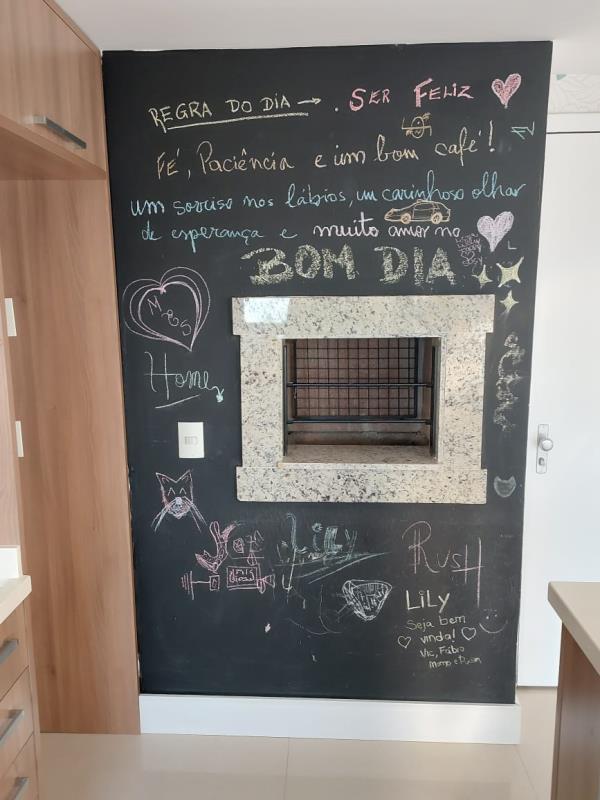 REGRA DO DIA → . SER FELIZ
FÉ, Paciência e um bom café!
um sorriso nos lábios, um carinhoso olhar
de esperança e muito amor no
BOM DIA
Home
Lily
RUSH
LILY
Seja bem
vinda!
Vic, Fábio